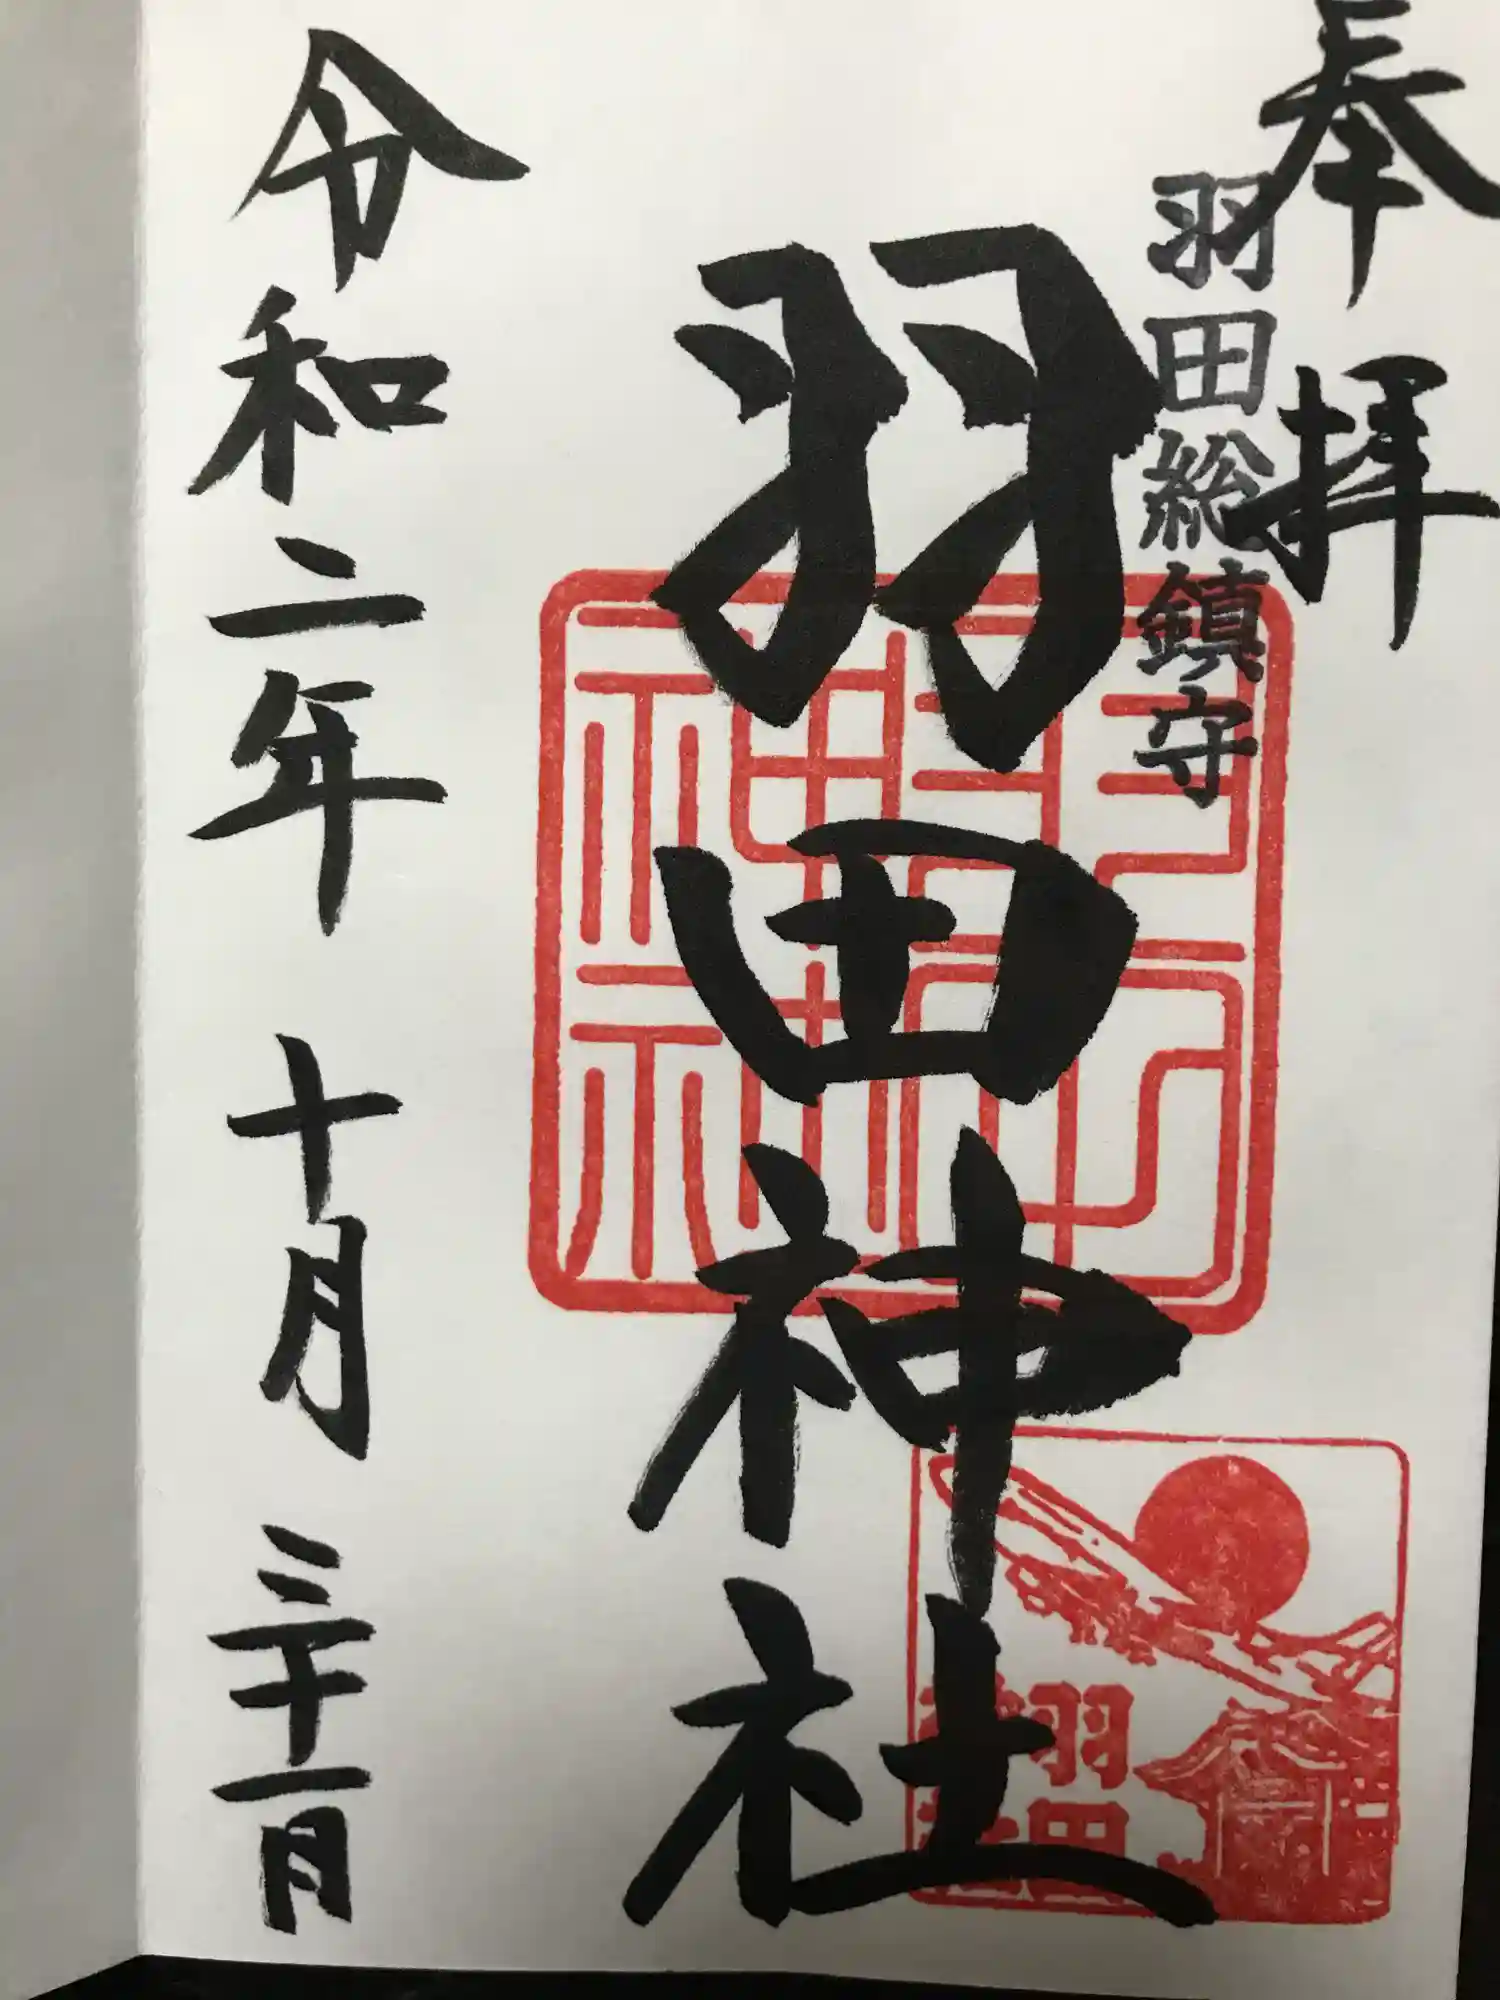 奉拝
羽田総鎮守
羽田神社
令和二年 十月 三十一日
羽田神社
羽田
神社